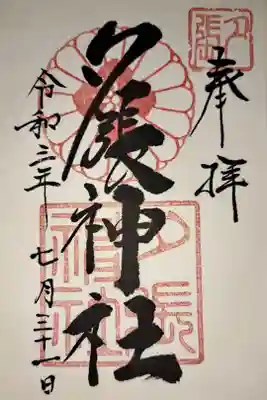 夕張
奉拝
夕張神社
夕張神社
令和三年 七月三十一日